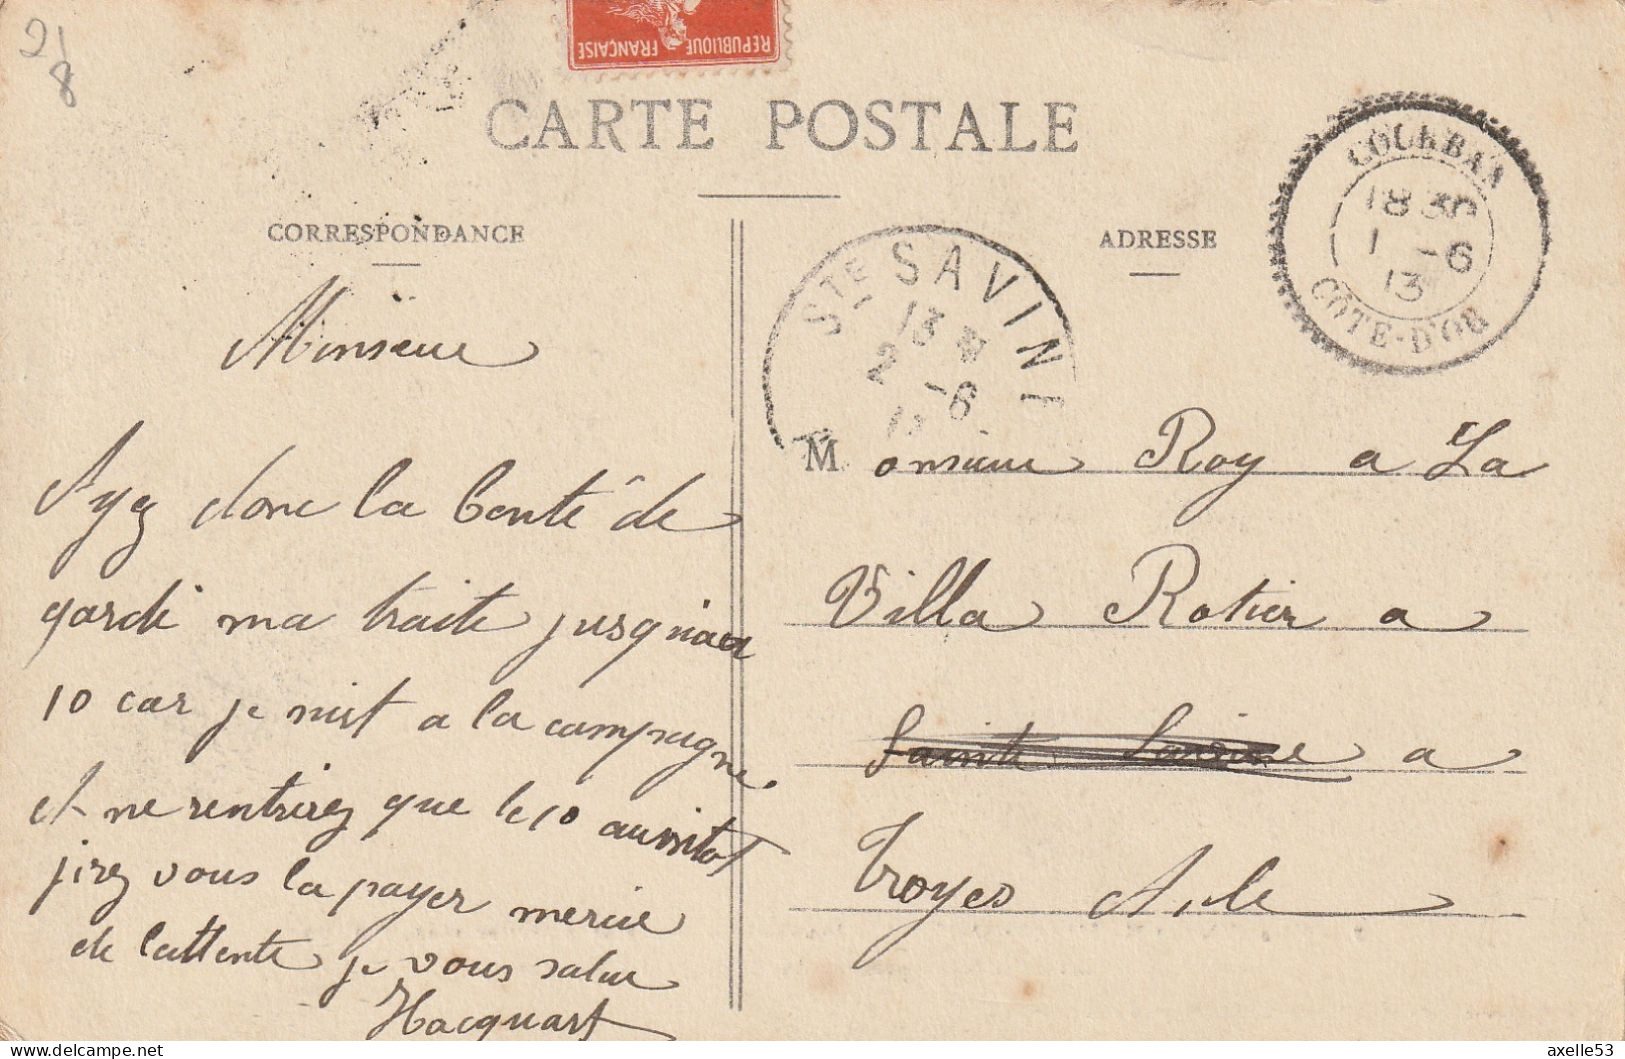 21
8
REPUBLIQUE FRANÇAISE
CARTE POSTALE
CORRESPONDANCE
ADRESSE
COURBAN
18 30
1 -6
13
CÔTE-D'OR
STE SAVINE
13
2 -6
13
Monsieur
Ayez donc la bonté de
garde ma traite jusqu'au
10 car je suist a la campagne
et ne rentrerez que le 10 aussitot
jirez vous la payer mercie
de lattente je vous salue
Hacquart
Monsieur Roy a La
Villa Rotier a
Sainte Savine a
Troyes Aube
axelle53